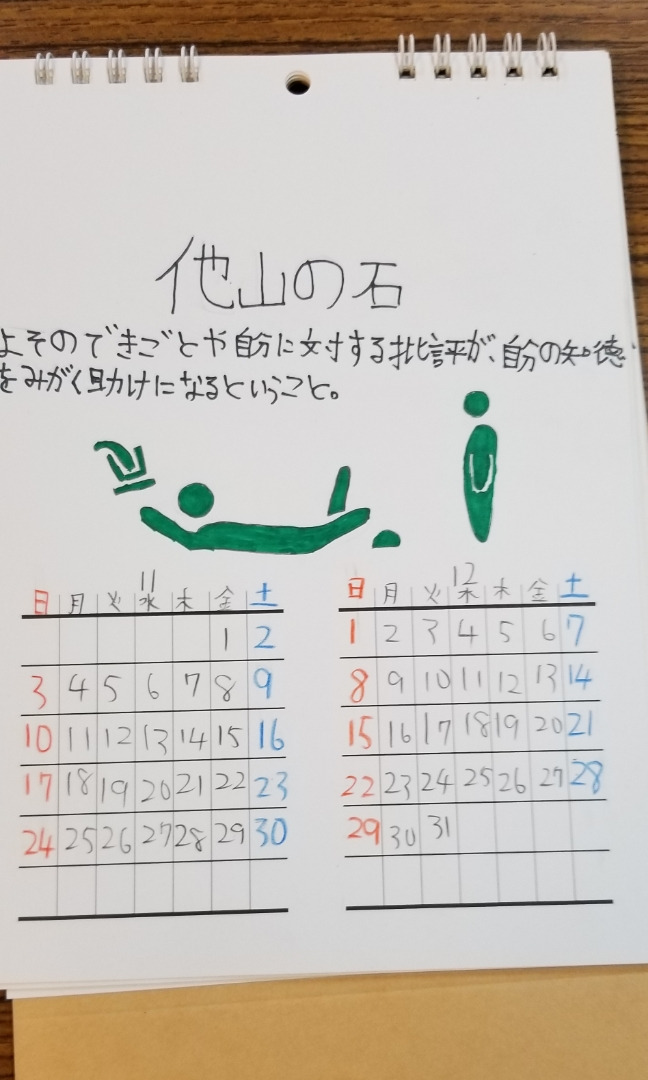 他山の石
よそのできごとや自分に対する批評が、自分の知徳
をみがく助けになるということ。
11
日 月 火 水 木 金 土
1 2
3 4 5 6 7 8 9
10 11 12 13 14 15 16
17 18 19 20 21 22 23
24 25 26 27 28 29 30
12
日 月 火 木 木 金 土
1 2 3 4 5 6 7
8 9 10 11 12 13 14
15 16 17 18 19 20 21
22 23 24 25 26 27 28
29 30 31